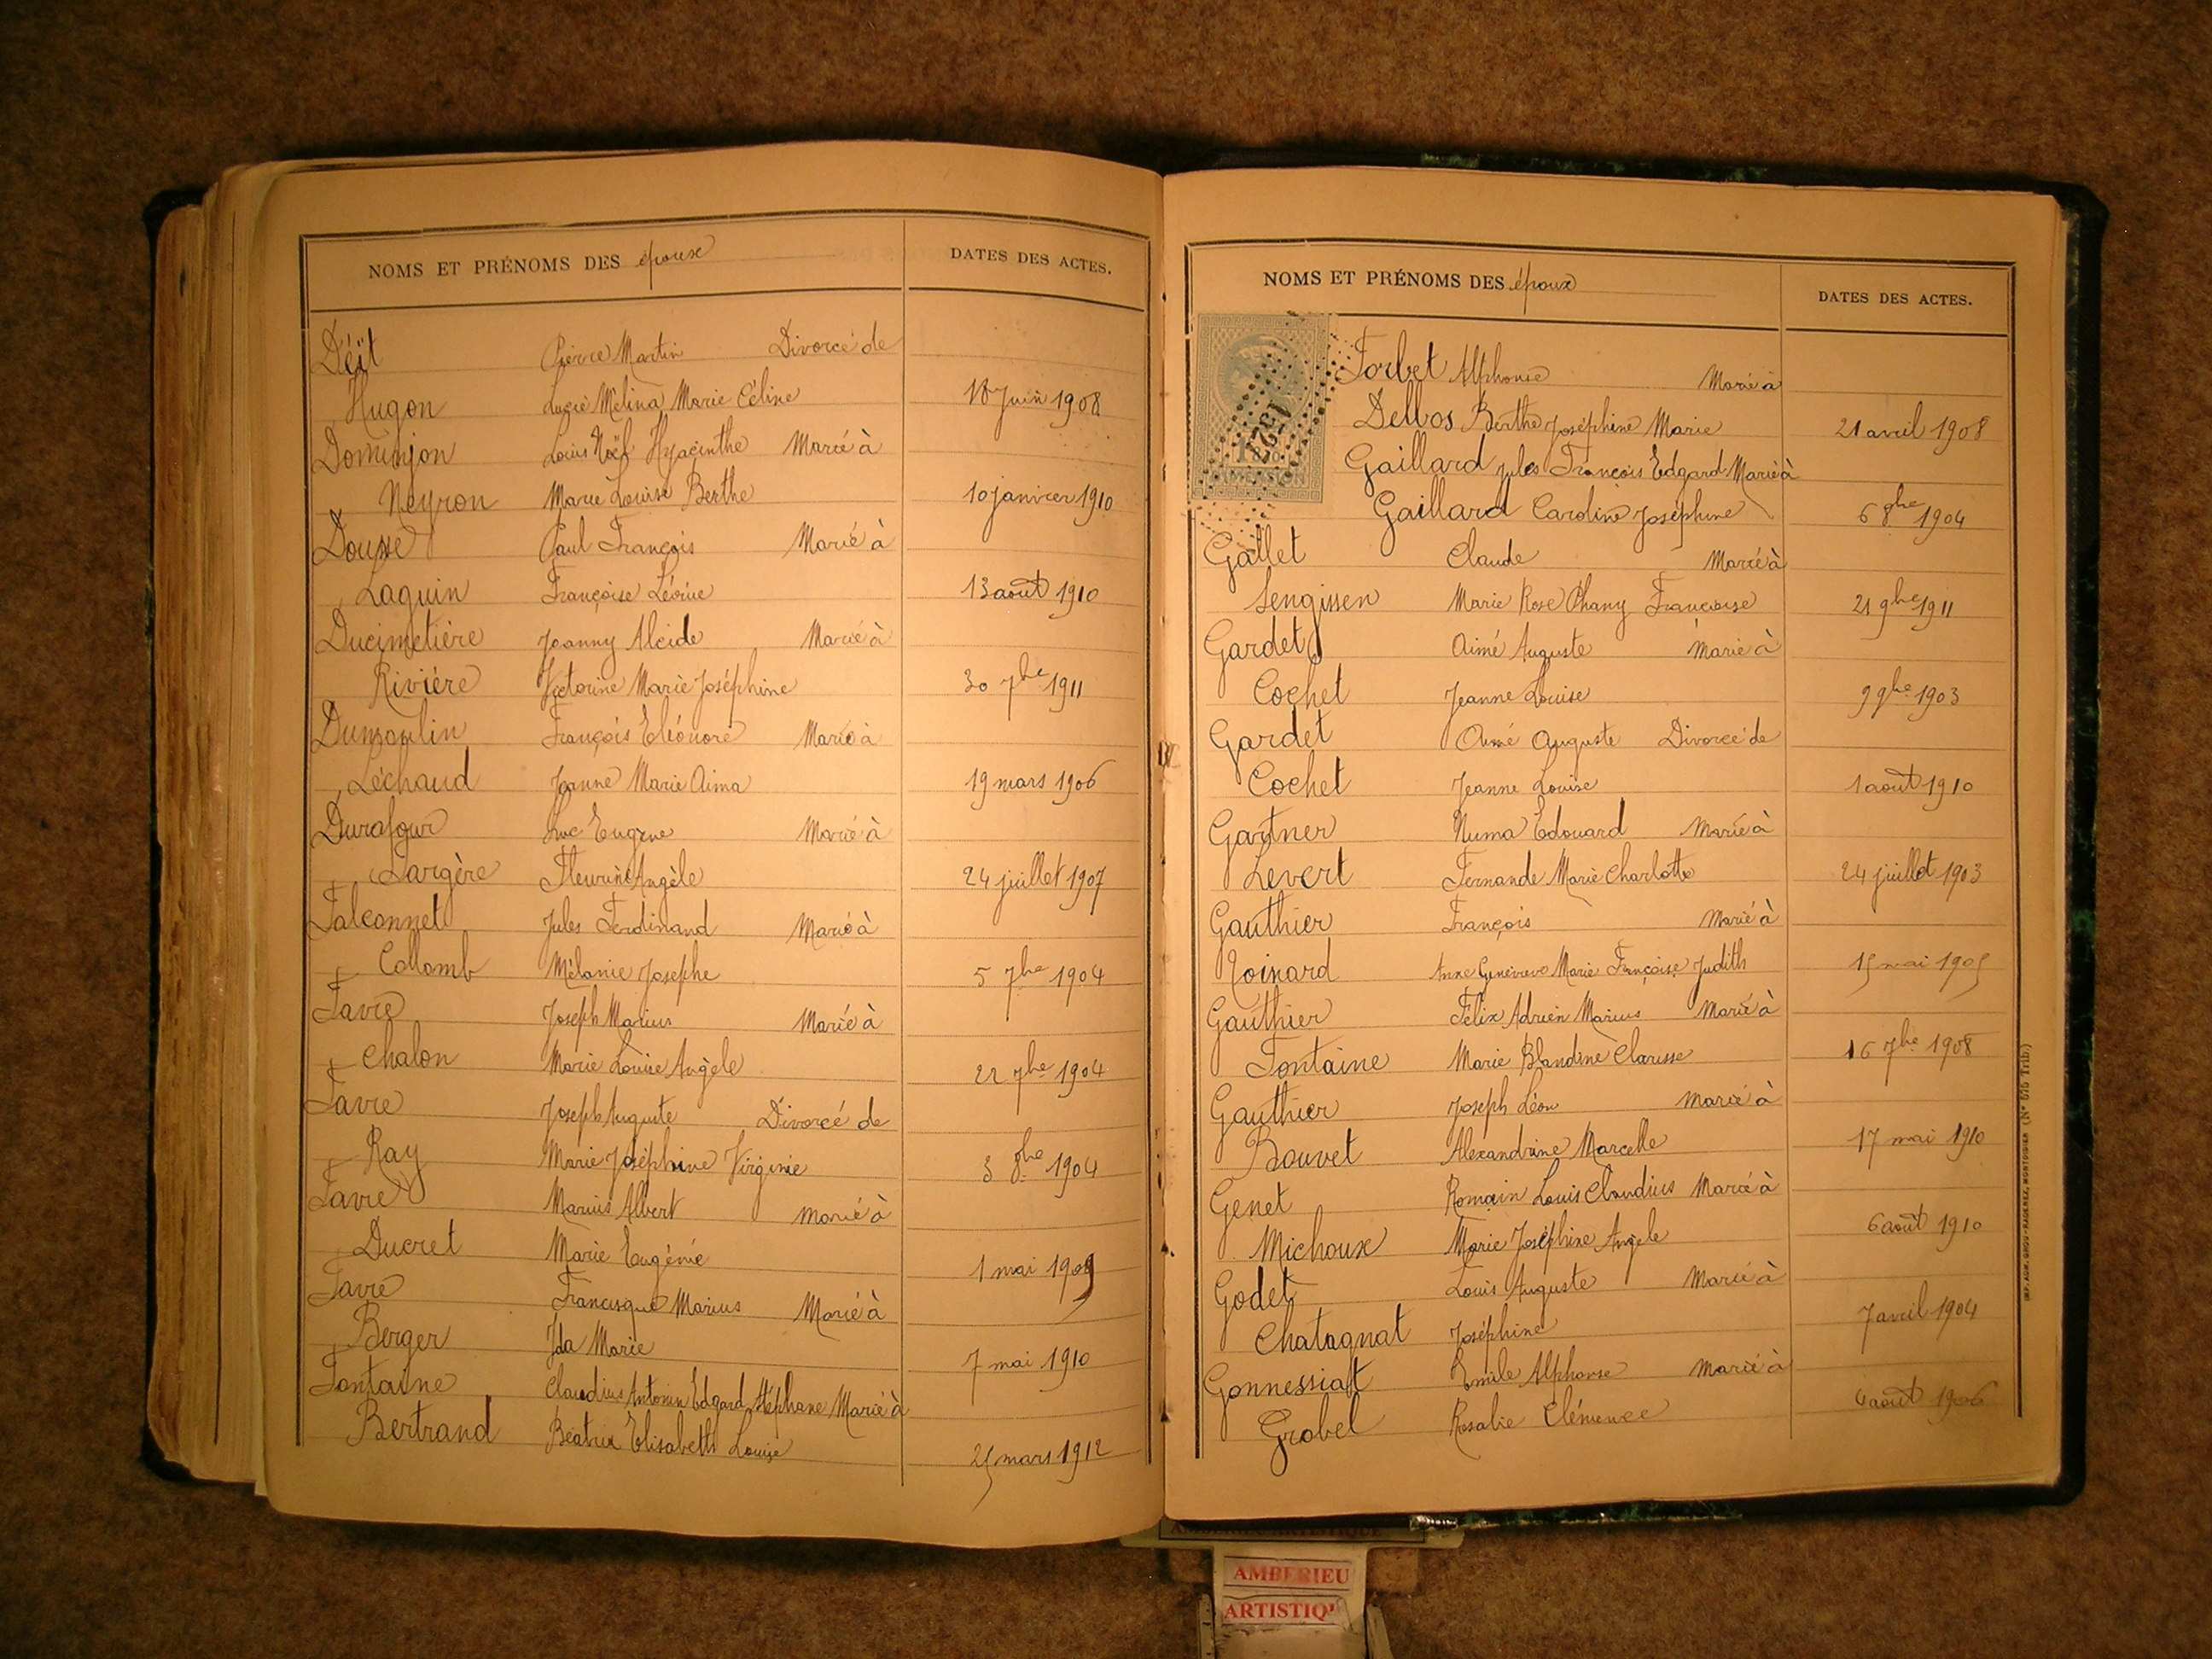 NOMS ET PRÉNOMS DES époux DATES DES ACTES.
Déït Pierre Martin Divorcé de
Hugon Lucie Mélina Marie Céline 18 Juin 1908
Dominjon Louis Noël Hyacinthe Marié à
Neyron Marie Louise Berthe 10 janvier 1910
Dousse Paul François Marié à
Laguin Françoise Léonie 13 août 1910
Ducimetière Joanny Alcide Marié à
Rivière Victorine Marie Joséphine 30 7bre 1911
Dumoulin François Eléonore Marié à
Léchaud Jeanne Marie Aima 19 mars 1906
Durafour Luc Eugène Marié à
Largère Fleurine Angèle 24 juillet 1907
Falconnet Jules Ferdinand Marié à
Collomb Mélanie Josephe 5 7bre 1904
Favre Joseph Marius Marié à
Chalon Marie Louise Angèle 22 7bre 1904
Favre Joseph Auguste Divorcé de
Ray Marie Joséphine Virginie 3 8bre 1904
Favre Marius Albert Marié à
Ducret Marie Eugénie 1 mai 1909
Favre Francisque Marius Marié à
Berger Ida Marie 7 mai 1910
Fontaine Claudius Antonin Edgard Stéphane Marié à
Bertrand Béatrix Elisabeth Louise 25 mars 1912
NOMS ET PRÉNOMS DES époux DATES DES ACTES.
Forbet Alphonse Marié à
Delbos Berthe Joséphine Marie 21 avril 1908
Gaillard Jules François Edgard Marié à
Gaillard Caroline Joséphine 6 8bre 1904
Gallet Claude Marié à
Sengissen Marie Rose Phany Françoise 21 9bre 1911
Gardet Aimé Auguste Marié à
Cochet Jeanne Louise 9 9bre 1903
Gardet Aimé Auguste Divorcé de
Cochet Jeanne Louise 1 août 1910
Gartner Numa Edouard Marié à
Levert Fernande Marie Charlotte 24 juillet 1903
Gauthier François Marié à
Noinard Anne Geneviève Marie Françoise Judith 15 mai 1905
Gauthier Félix Adrien Marius Marié à
Fontaine Marie Blandine Clarisse 16 7bre 1908
Gauthier Joseph Léon Marié à
Bouvet Alexandrine Marcelle 17 mai 1910
Genet Romain Louis Claudius Marié à
Michoux Marie Joséphine Angèle 6 août 1910
Godet Louis Auguste Marié à
Chatagnat Joséphine 7 avril 1904
Gonnessiat Emile Alphonse Marié à
Grobel Rosalie Clémence 4 août 1906
AMBERIEU
ARTISTIQU